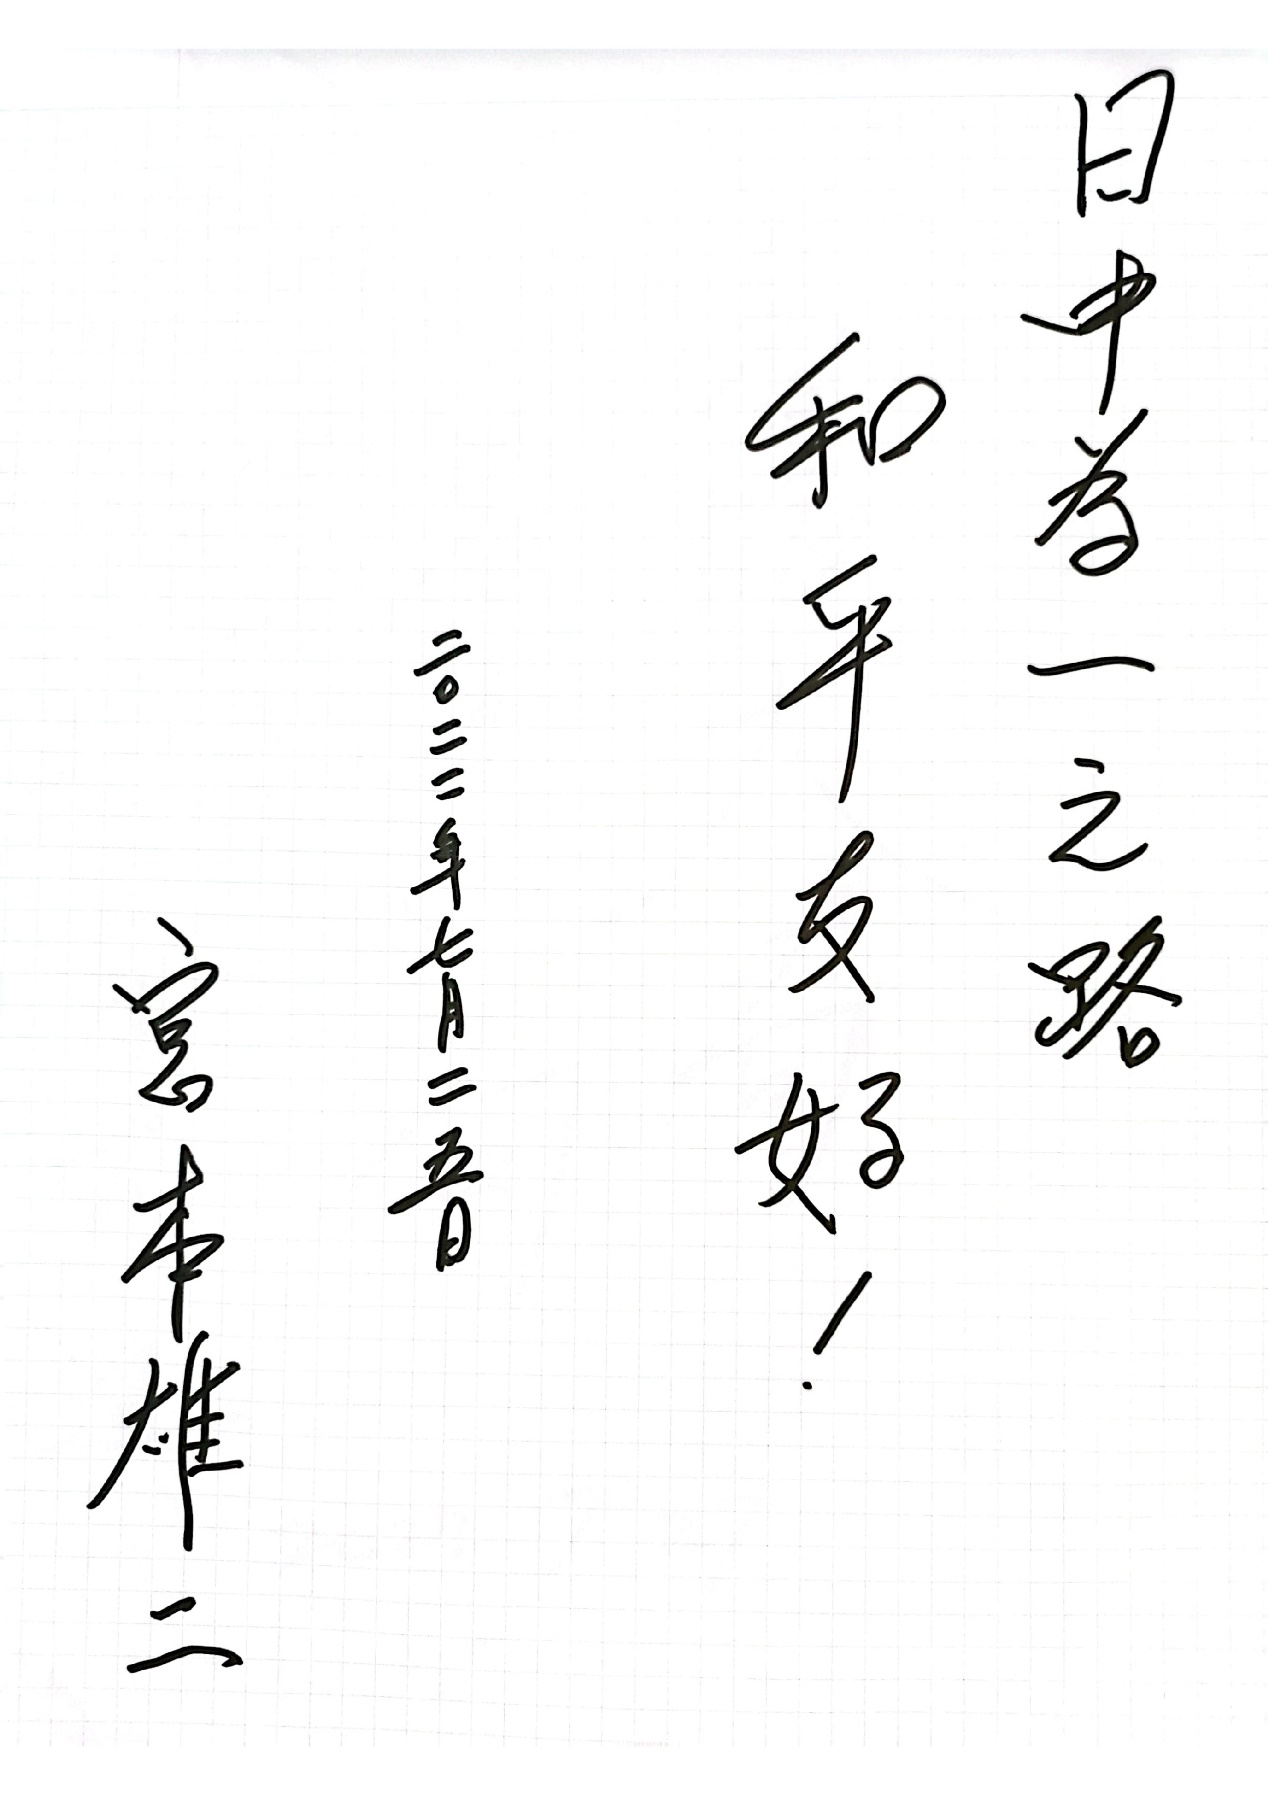 日中为一之路
和平友好!
二〇二二年七月二五日
宮本雄二